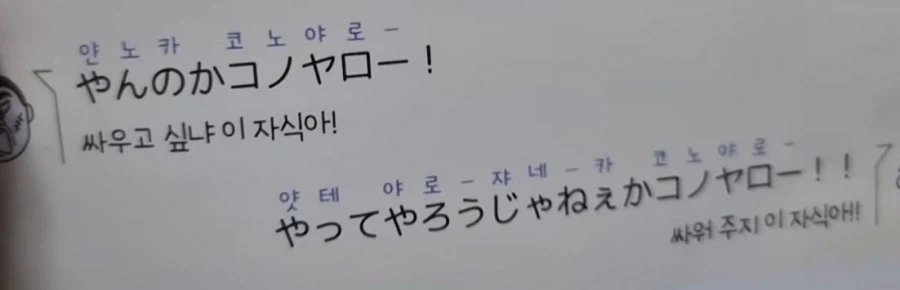 얀 노 카 코 노 야 로 -
やんのかコノヤロー!
싸우고 싶냐 이 자식아!
얏 테 야 로 - 쟈 네 - 카 코 노 야 로 -
やってやろうじゃねぇかコノヤロー!!
싸워 주지 이 자식아!!